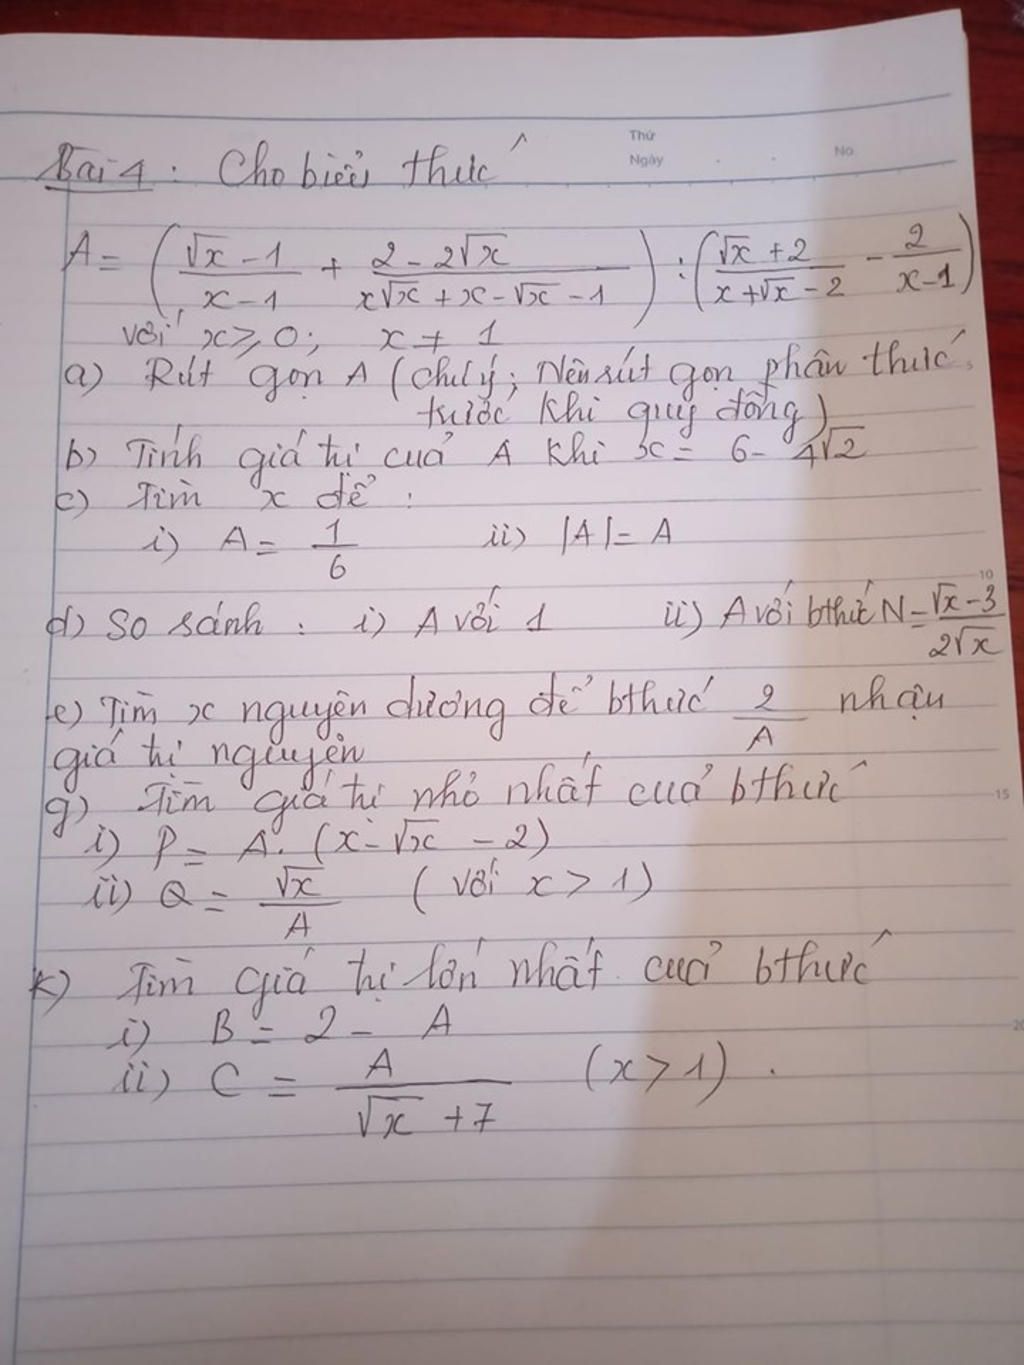 Thứ
Ngày No.
Bài 4: Cho biểu thức
A = ( (√x - 1)/(x - 1) + (2 - 2√x)/(x√x + x - √x - 1) ) : ( (√x + 2)/(x + √x - 2) - 2/(x - 1) )
với x ≥ 0; x ≠ 1
a) Rút gọn A (chú ý; Nên rút gọn phân thức
trước khi quy đồng)
b) Tính giá trị của A khi x = 6 - 4√2
c) Tìm x để:
i) A = 1/6 ii) |A| = A
10
d) So sánh: i) A với 1 ii) A với bthức N = (√x - 3)/(2√x)
e) Tìm x nguyên dương để bthức 2/A nhận
giá trị nguyên
g) Tìm giá trị nhỏ nhất của bthức
15
i) P = A. (x - √x - 2)
ii) Q = √x/A (với x > 1)
k) Tìm giá trị lớn nhất của bthức
i) B = 2 - A
20
ii) C = A/(√x + 7) (x > 1).